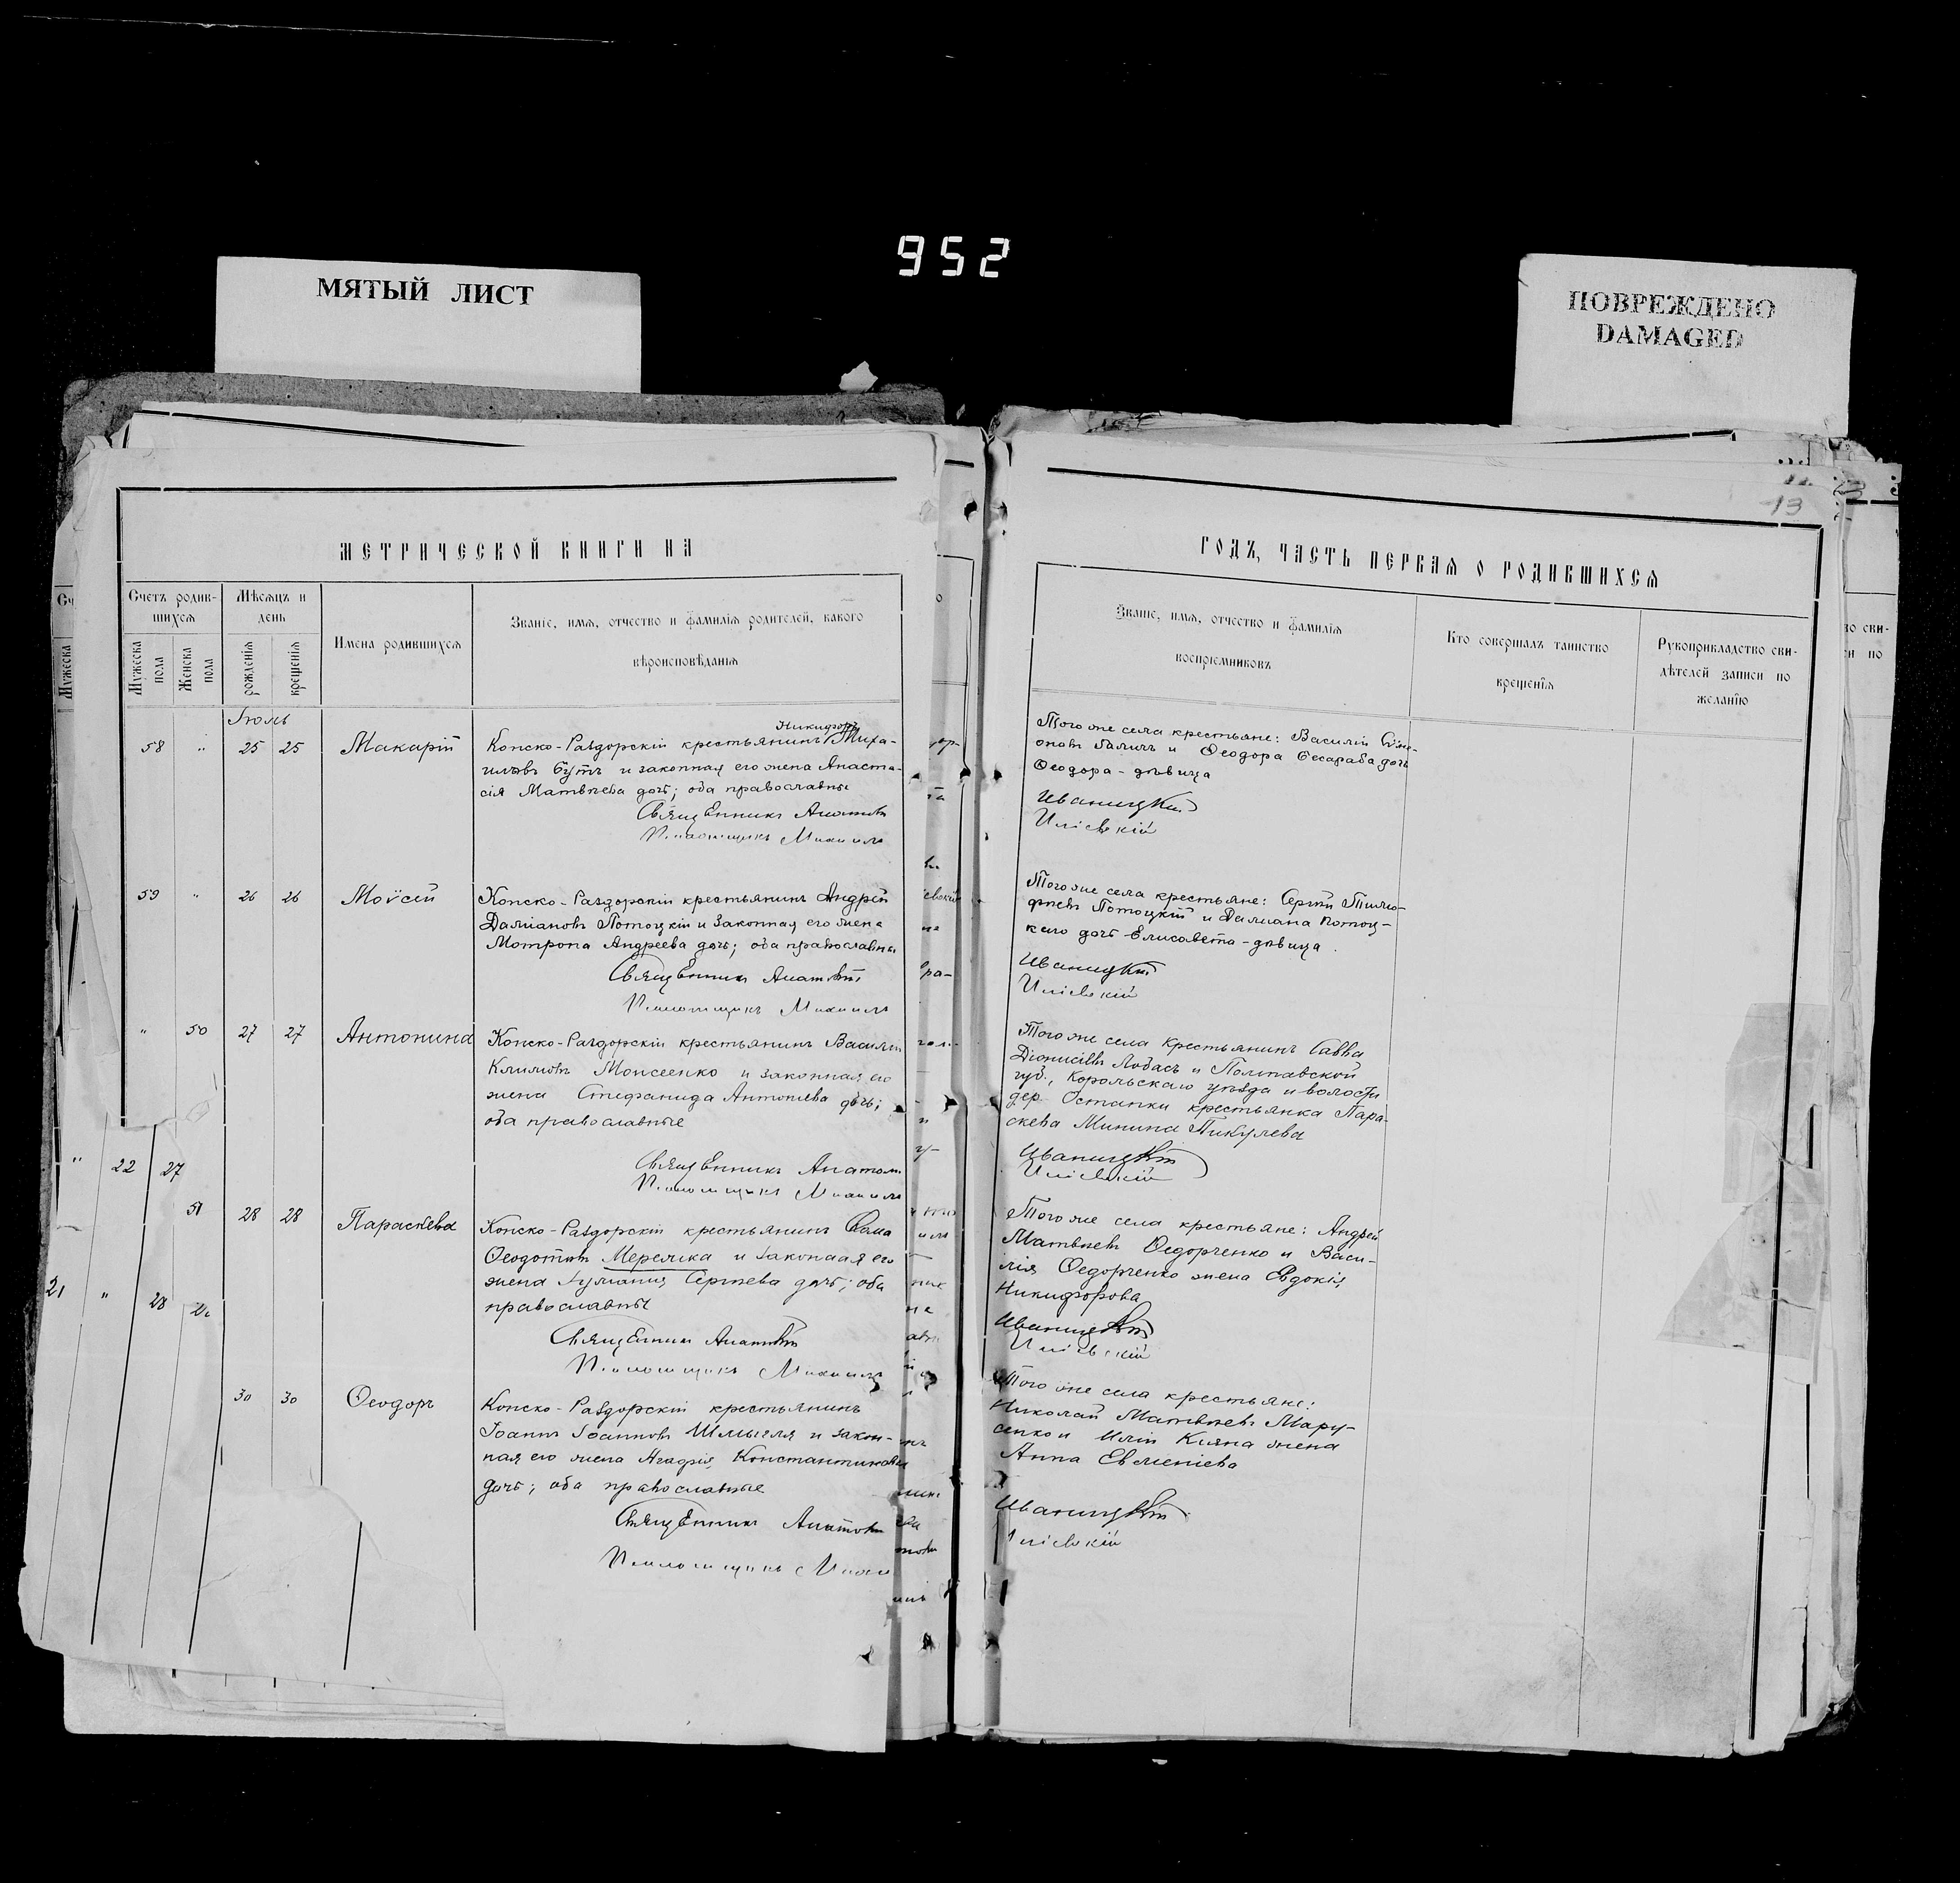 952
МЯТЫЙ ЛИСТ
ПОВРЕЖДЕНО
DAMAGED
13
МЕТРИЧЕСКОЙ КНИГИ НА
Счетъ родив-
шихся
Мѣсяцъ и
день
Мужеска
пола
Женска
пола
рожденія
крещенія
Имена родившихся
Званіе, имя, отчество и фамилія родителей, какого
вѣроисповѣданія
Іюль
58 " 25 25 Макарій
Никифоръ
Конско-Раздорскій крестьянинъ Миха-
иловъ Бутъ и законная его жена Анаста-
сія Матвѣева дочь; оба православные
Священникъ Анатолій
Псаломщикъ Михаилъ
59 " 26 26 Моѵсей
Конско-Раздорскій крестьянинъ Андрей
Даміановъ Потоцкій и законная его жена
Мотрона Андреева дочь; оба православны
Священникъ Анатолій
Псаломщикъ Михаилъ
" 50 27 27 Антонина
Конско-Раздорскій крестьянинъ Василій
Климовъ Моисеенко и законная его
жена Стефанида Антоніева дочь;
оба православные
Священникъ Анатолій
Псаломщикъ Михаилъ
" 22 27
51 28 28 Параскева
Конско-Раздорскій крестьянинъ Ѳома
Ѳеодотовъ Мережка и законная его
жена Іуліанія Сергѣева дочь; оба
православные
Священникъ Анатолій
Псаломщикъ Михаилъ
21 " 28
30 30 Ѳеодоръ
Конско-Раздорскій крестьянинъ
Іоаннъ Іоанновъ Шмыгля и закон-
ная его жена Агафія Константинова
дочь; оба православные
Священникъ Анатолій
Псаломщикъ Михаи
ГОДЪ, ЧАСТЬ ПЕРВАЯ О РОДИВШИХСЯ
Званіе, имя, отчество и фамилія
воспріемниковъ
Кто совершалъ таинство
крещенія
Рукоприкладство сви-
дѣтелей записи по
желанію
Того же села крестьяне: Василій Симе-
оновъ и Ѳеодора Бесараба дочь
Ѳеодора - дѣвица
Иваницкій
Иліевскій
Того же села крестьяне: Сергій Тимо-
фѣевъ Потоцкій и Даміана Потоц-
каго дочь Елисавета - дѣвица.
Иваницкій
Иліевскій
Того же села крестьянинъ Савва
Діонисіевъ Лобасъ и Полтавской
губ., Корольскаго уѣзда и волости
дер. Останки крестьянка Пара-
скева Минина Пикулева
Иваницкій
Иліевскій
Того же села крестьяне: Андрей
Матвѣевъ Ѳедорченко и Васи-
лія Ѳедорченко жена Евдокія
Никифорова
Иваницкій
Иліевскій
Того же села крестьяне:
Николай Матвѣевъ Мару-
сенко и Иліи Кияна жена
Анна Евменіева
Иваницкій
Иліевскій